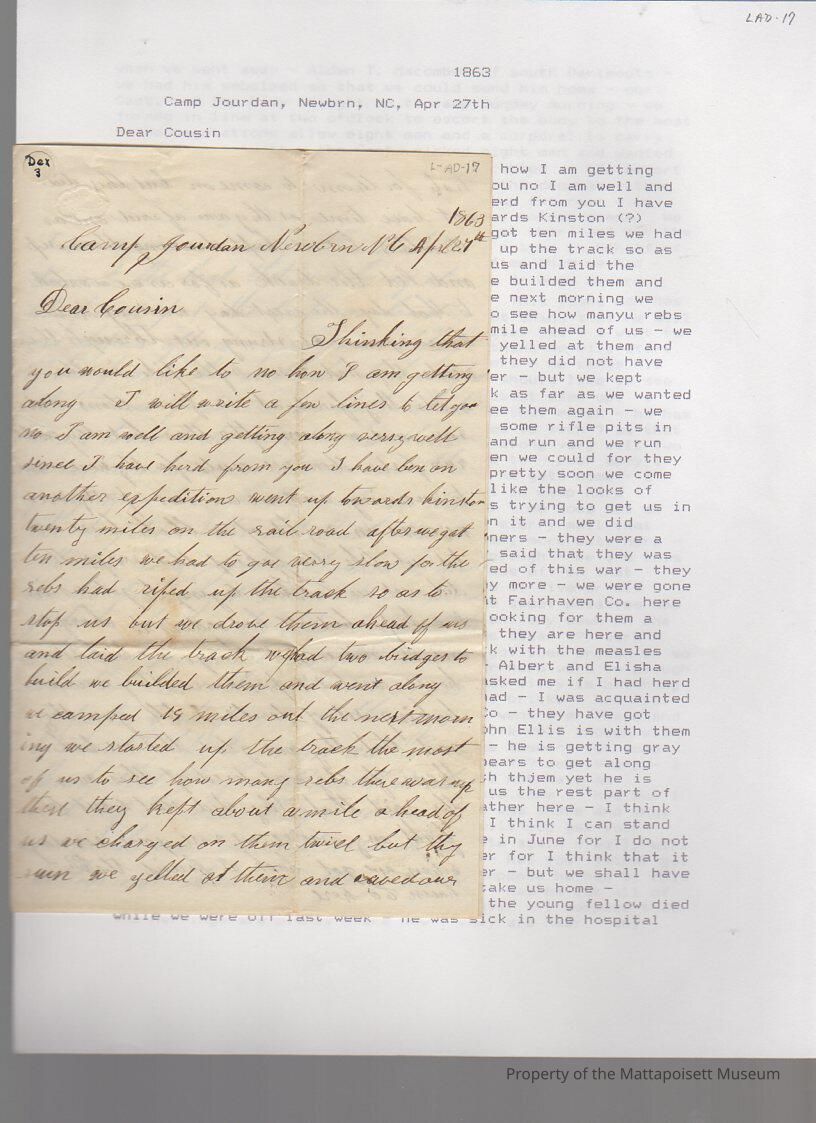 LAD-17
1863
Camp Jourdan, Newbrn, NC, Apr 27th
Dear Cousin
how I am getting
ou no I am well and
erd from you I have
ards Kinston (?)
got ten miles we had
up the track so as
us and laid the
e builded them and
e next morning we
o see how manyu rebs
mile ahead of us - we
yelled at them and
they did not have
er - but we kept
k as far as we wanted
ee them again - we
some rifle pits in
and run and we run
en we could for they
pretty soon we come
like the looks of
s trying to get us in
n it and we did
ners - they were a
said that they was
ed of this war - they
y more - we were gone
t Fairhaven Co. here
ooking for them a
they are here and
k with the measles
- Albert and Elisha
asked me if I had herd
ad - I was acquainted
Co - they have got
ohn Ellis is with them
- he is getting gray
pears to get along
h thjem yet he is
us the rest part of
ather here - I think
I think I can stand
e in June for I do not
er for I think that it
er - but we shall have
take us home -
the young fellow died
while we were off last week - he was sick in the hospital
Dex
3
L-AD-17
1863
Camp Jourdan Newbrn N C April 27th
Dear Cousin
Thinking that
you would like to no how I am getting
along I will write a few lines to let you
no I am well and getting along verry well
since I have herd from you I have ben on
another expedition went up towards kinston
twenty miles on the rail road after we got
ten miles we had to goe verry slow for the
rebs had riped up the track so as to
stop us but we drove them ahead of us
and laid the track we had two bridges to
build we builded them and went along
we camped 18 miles out the next morn
ing we started up the track the most
of us to see how many rebs there was up
there they kept about a mile a head of
us we charged on them twise but thy
run we yelled at them and waved our
Property of the Mattapoisett Museum